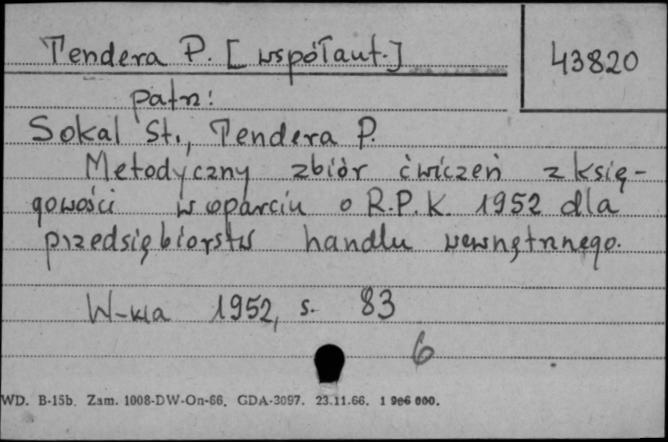 Tendera P. [współaut.]
43820
patrz:
Sokal St., Tendera P.
Metodyczny zbiór ćwiczeń z księ-
gowości w oparciu o R.P.K. 1952 dla
przedsiębiorstw handlu wewnętrznego.
W-wa 1952, s. 83
6
WD. B-15b. Zam. 1008-DW-On-66. GDA-3097. 23.11.66. 1 906 000.